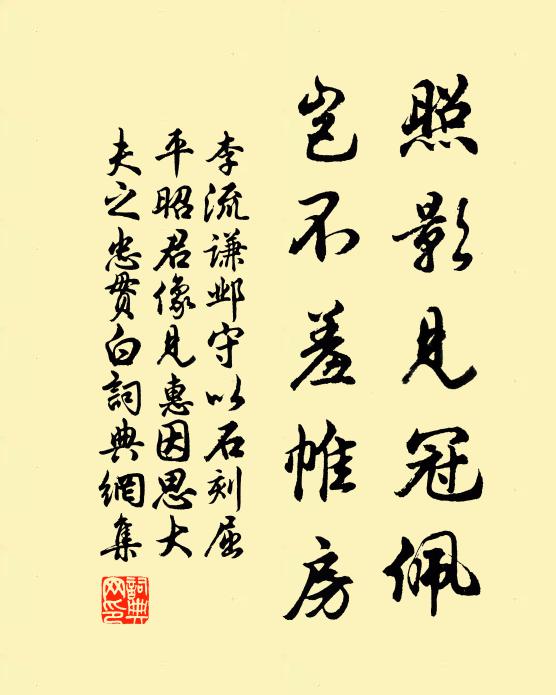 照影見冠佩
豈不羞帷房
李流謙邺守以石刻屈
平昭君像見惠因思大
夫之忠贯白詞典網集
詞典網印